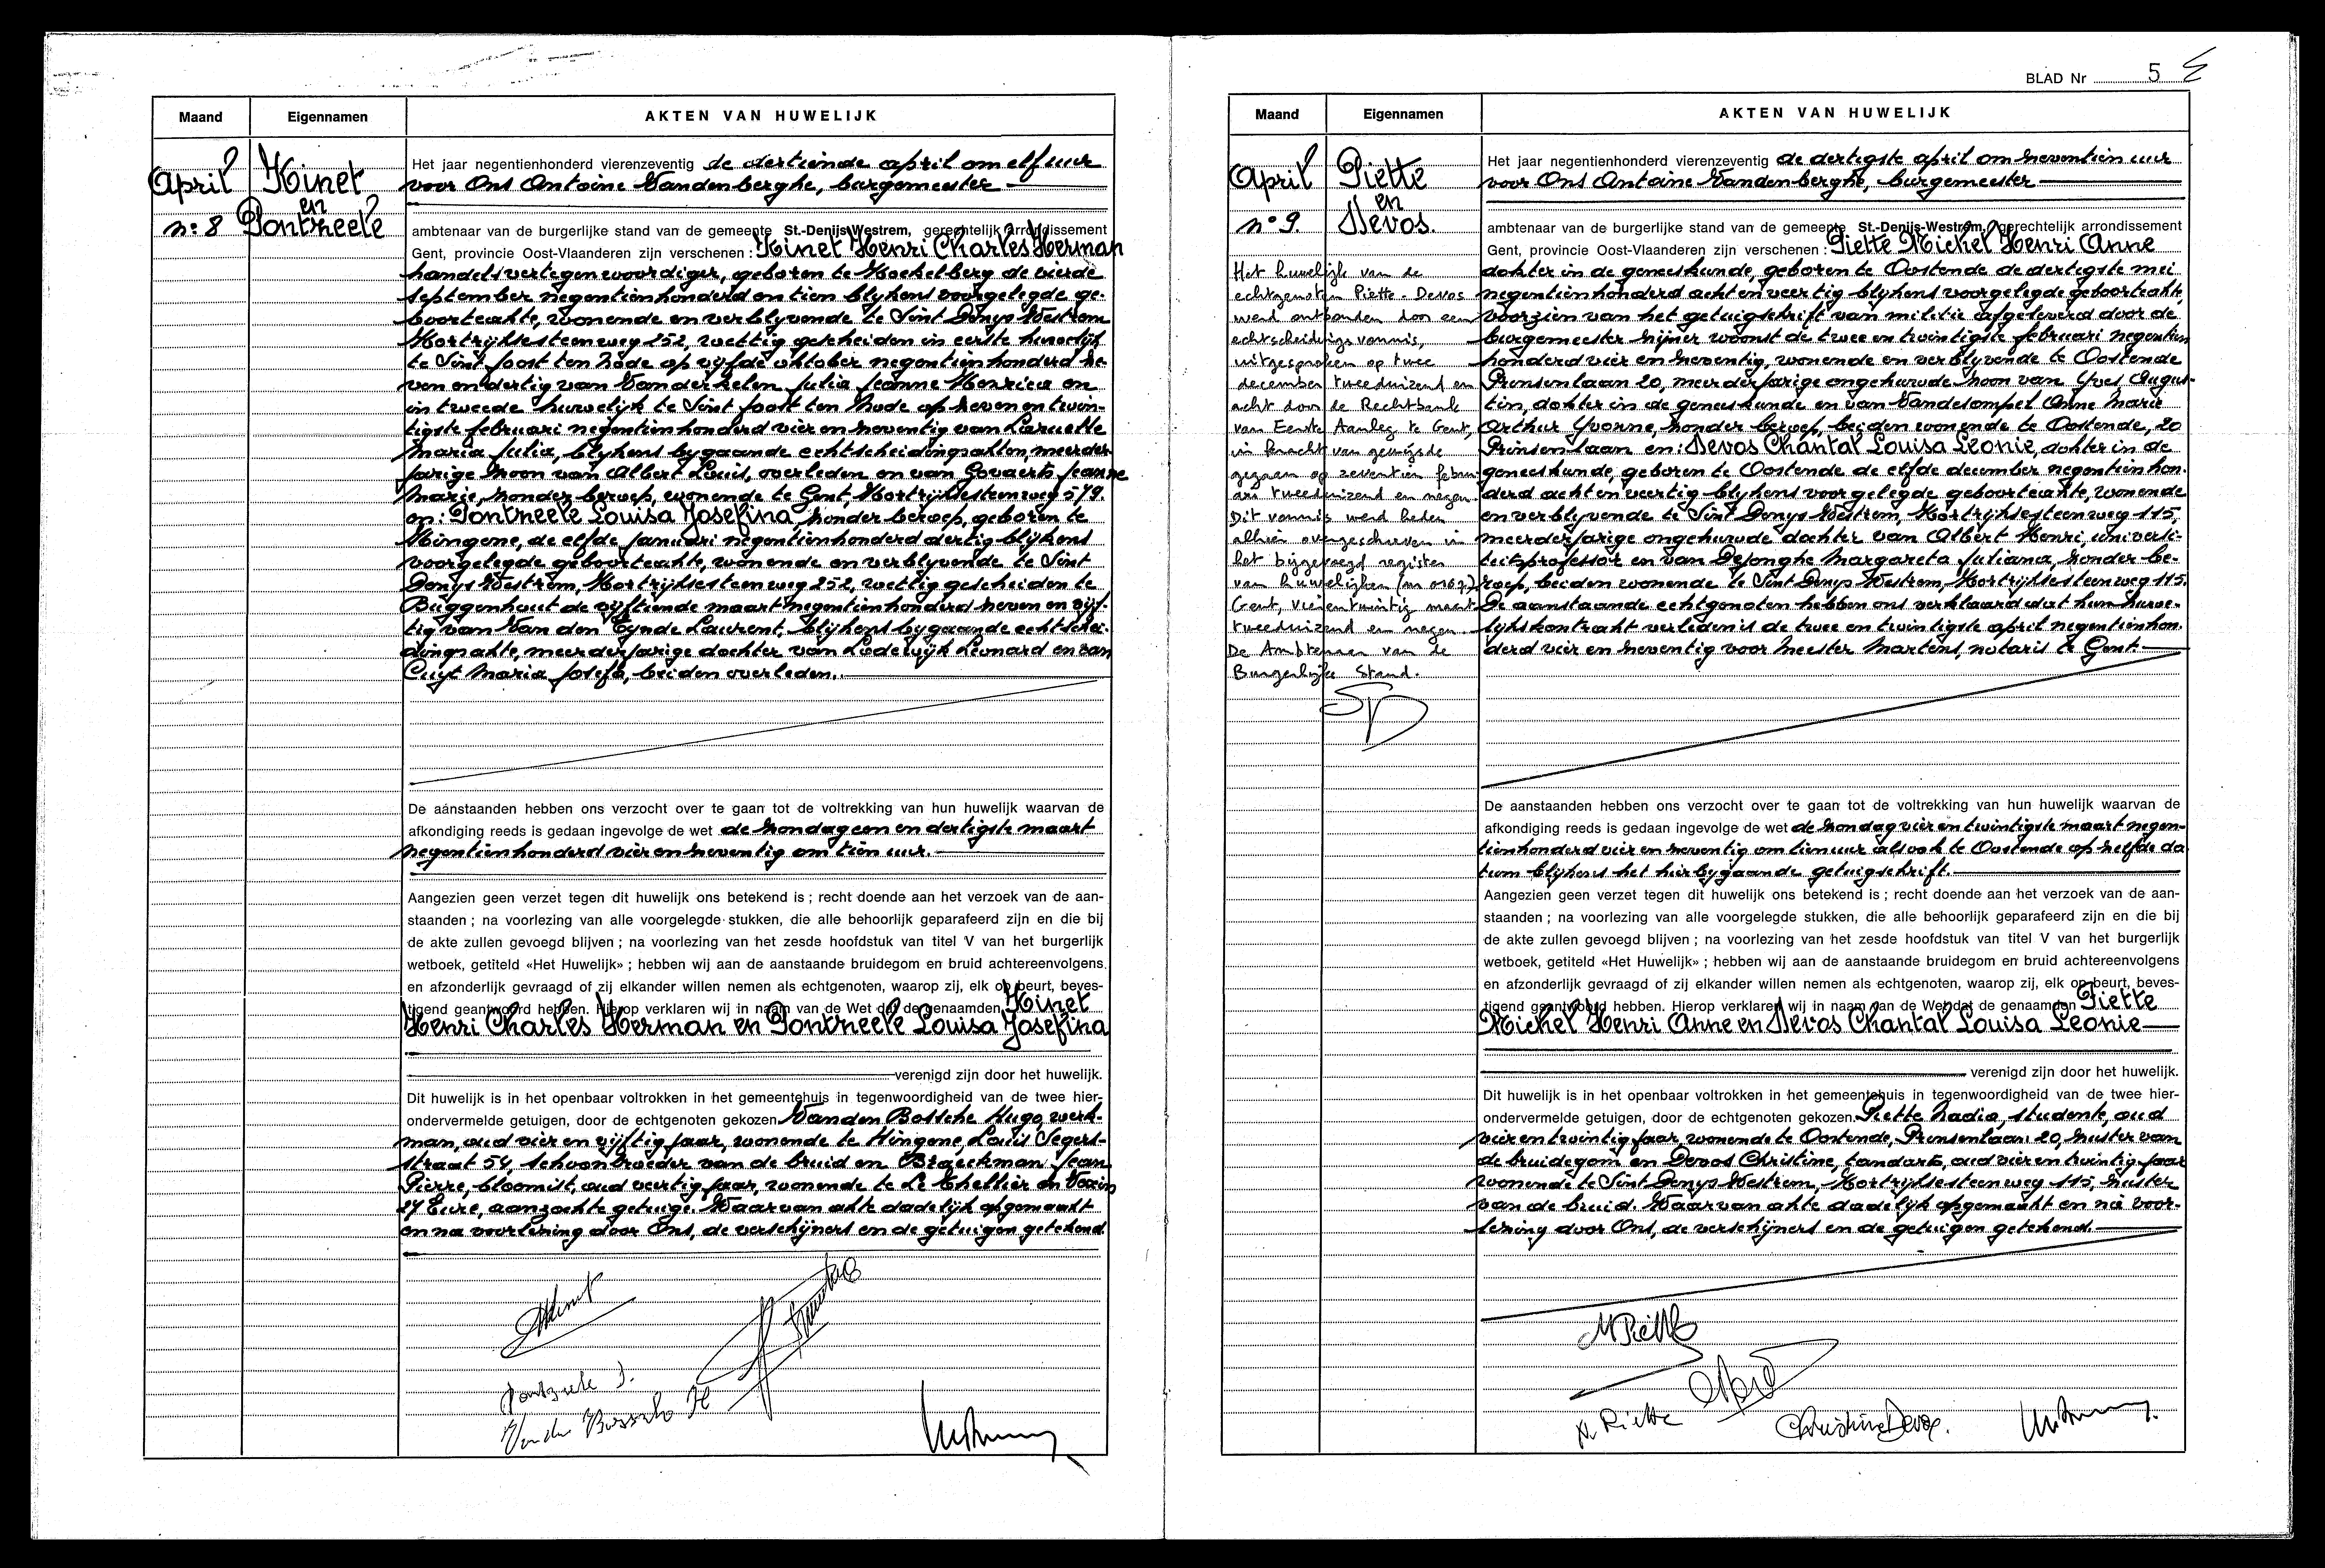 Maand Eigennamen AKTEN VAN HUWELIJK
April Kinet
en
n: 8 Pontzeele
Het jaar negentienhonderd vierenzeventig de dertiende april om elf uur
voor Ons Antoine Vandenberghe, burgemeester
ambtenaar van de burgerlijke stand van de gemeente St.-Denijs-Westrem, gerechtelijk arrondissement
Gent, provincie Oost-Vlaanderen zijn verschenen : Kinet Henri Charles Herman
handelsvertegenwoordiger, geboren te Koekelberg de vierde
september negentienhonderd en tien blijkens voorgelegde ge-
boorteakte, wonende en verblyvende te Sint Denys Westrem
Kortrijksesteenweg 252, wettig gescheiden in eerste huwelijk
te Sint Joost ten Node op vijfde oktober negentienhonderd ze-
ven en dertig van Vanderkelen Julia Jeanne Henrica en
in tweede huwelijk te Sint Joost ten Node op zeven en twin-
tigste februari negentienhonderd vier en zeventig van Laruelle
Maria Julia, blijkens bygaande echtscheidingsakten, meerder-
jarige zoon van Albert Louis, overleden en van Govaerts Jeanne
Marie, zonder beroep, wonende te Gent, Kortrijksesteenweg 579.
en: Pontzeele Louisa Josefina, zonder beroep, geboren te
Hingene, de elfde januari negentienhonderd dertig blijkens
voorgelegde geboorteakte, wonende en verblyvende te Sint
Denys Westrem, Kortrijksesteenweg 252, wettig gescheiden te
Buggenhout de vijftiende maart negentienhonderd zeven en vijf-
tig van Van den Eynde Laurent, blijkens bygaande echtschei-
dingsakte, meerderjarige dochter van Lodewijk Leonard en van
Cuyt Maria Josefa, beiden overleden.
De aanstaanden hebben ons verzocht over te gaan tot de voltrekking van hun huwelijk waarvan de
afkondiging reeds is gedaan ingevolge de wet de zondag een en dertigste maart
negentienhonderd vier en zeventig om tien uur.
Aangezien geen verzet tegen dit huwelijk ons betekend is ; recht doende aan het verzoek van de aan-
staanden ; na voorlezing van alle voorgelegde stukken, die alle behoorlijk geparafeerd zijn en die bij
de akte zullen gevoegd blijven ; na voorlezing van het zesde hoofdstuk van titel V van het burgerlijk
wetboek, getiteld «Het Huwelijk» ; hebben wij aan de aanstaande bruidegom en bruid achtereenvolgens
en afzonderlijk gevraagd of zij elkander willen nemen als echtgenoten, waarop zij, elk op beurt, beves-
tigend geantwoord hebben. Hierop verklaren wij in naam van de Wet dat de genaamden Kinet
Henri Charles Herman en Pontzeele Louisa Josefina
verenigd zijn door het huwelijk.
Dit huwelijk is in het openbaar voltrokken in het gemeentehuis in tegenwoordigheid van de twee hier-
ondervermelde getuigen, door de echtgenoten gekozen Vanden Bossche Hugo, werk-
man, oud vier en vijftig jaar, wonende te Hingene, Louis Segers-
straat 54, schoonbroeder van de bruid en Braeckman Jean
Pierre, bloemist, oud veertig jaar, wonende te Le Thellier en Vexin
27 Eure, aanzochte getuige. Waarvan akte dadelijk opgemaakt
en na voorlezing door Ons, de verschijners en de getuigen getekend.
Kinet
Pontzeele J.
Vanden Bossche H
BLAD Nr 5
Maand Eigennamen AKTEN VAN HUWELIJK
April Piette
en
n° 9 Devos.
Het huwelijk van de
echtgenoten Piette - Devos
werd ontbonden door een
echtscheidingsvonnis,
uitgesproken op twee
december tweeduizend en
acht door de Rechtbank
van Eerste Aanleg te Gent,
in kracht van gewijsde
gegaan op zeventien febru-
ari tweeduizend en negen.
Dit vonnis werd heden
alhier overgeschreven in
het bijgevoegd register
van huwelijken (nr 0167).
Gent, vierentwintig maart
tweeduizend en negen.
De Ambtenaar van de
Burgerlijke Stand.
Het jaar negentienhonderd vierenzeventig de dertigste april om zeventien uur
voor Ons Antoine Vandenberghe, burgemeester
ambtenaar van de burgerlijke stand van de gemeente St.-Denijs-Westrem, gerechtelijk arrondissement
Gent, provincie Oost-Vlaanderen zijn verschenen : Piette Michel Henri Anne
dokter in de geneeskunde, geboren te Oostende de dertigste mei
negentienhonderd acht en veertig blijkens voorgelegde geboorteakte,
voorzien van het getuigschrift van militie afgeleverd door de
burgemeester zijner woonst de twee en twintigste februari negentien
honderd vier en zeventig, wonende en verblyvende te Oostende
Prinsenlaan 20, meerderjarige ongehuwde zoon van Yves Augus-
tin, dokter in de geneeskunde en van Vandesompel Anne Marie
Arthur Yvonne, zonder beroep, beiden wonende te Oostende, 20
Prinsenlaan en: Devos Chantal Louisa Leonie, dokter in de
geneeskunde, geboren te Oostende de elfde december negentienhon-
derd acht en veertig blijkens voorgelegde geboorteakte, wonende
en verblyvende te Sint Denys Westrem, Kortrijksesteenweg 115,
meerderjarige ongehuwde dochter van Albert Henri, universi-
teitsprofessor en van Dejonghe Margareta Juliana, zonder be-
roep, beiden wonende te Sint Denys Westrem, Kortrijksesteenweg 115.
De aanstaande echtgenoten hebben ons verklaard dat hun huwe-
lijkskontrakt verleden is de twee en twintigste april negentienhon-
derd vier en zeventig voor meester Martens, notaris te Gent.
De aanstaanden hebben ons verzocht over te gaan tot de voltrekking van hun huwelijk waarvan de
afkondiging reeds is gedaan ingevolge de wet de zondag vier en twintigste maart negen-
tienhonderd vier en zeventig om tien uur alsook te Oostende op zelfde da
tum blijkens het hierbygaande getuigschrift.
Aangezien geen verzet tegen dit huwelijk ons betekend is ; recht doende aan het verzoek van de aan-
staanden ; na voorlezing van alle voorgelegde stukken, die alle behoorlijk geparafeerd zijn en die bij
de akte zullen gevoegd blijven ; na voorlezing van het zesde hoofdstuk van titel V van het burgerlijk
wetboek, getiteld «Het Huwelijk» ; hebben wij aan de aanstaande bruidegom en bruid achtereenvolgens
en afzonderlijk gevraagd of zij elkander willen nemen als echtgenoten, waarop zij, elk op beurt, beves-
tigend geantwoord hebben. Hierop verklaren wij in naam van de Wet dat de genaamden Piette
Michel Henri Anne en Devos Chantal Louisa Leonie
verenigd zijn door het huwelijk.
Dit huwelijk is in het openbaar voltrokken in het gemeentehuis in tegenwoordigheid van de twee hier-
ondervermelde getuigen, door de echtgenoten gekozen Piette Nadia, studente, oud
vier en twintig jaar, wonende te Oostende, Prinsenlaan 20, zuster van
de bruidegom en Devos Christine, tandarts, oud vier en twintig jaar
wonende te Sint Denys Westrem, Kortrijksesteenweg 115, zuster
van de bruid. Waarvan akte dadelijk opgemaakt en na voor-
lezing door Ons, de verschijners en de getuigen getekend.
M Piette
N. Piette Christine Devos.